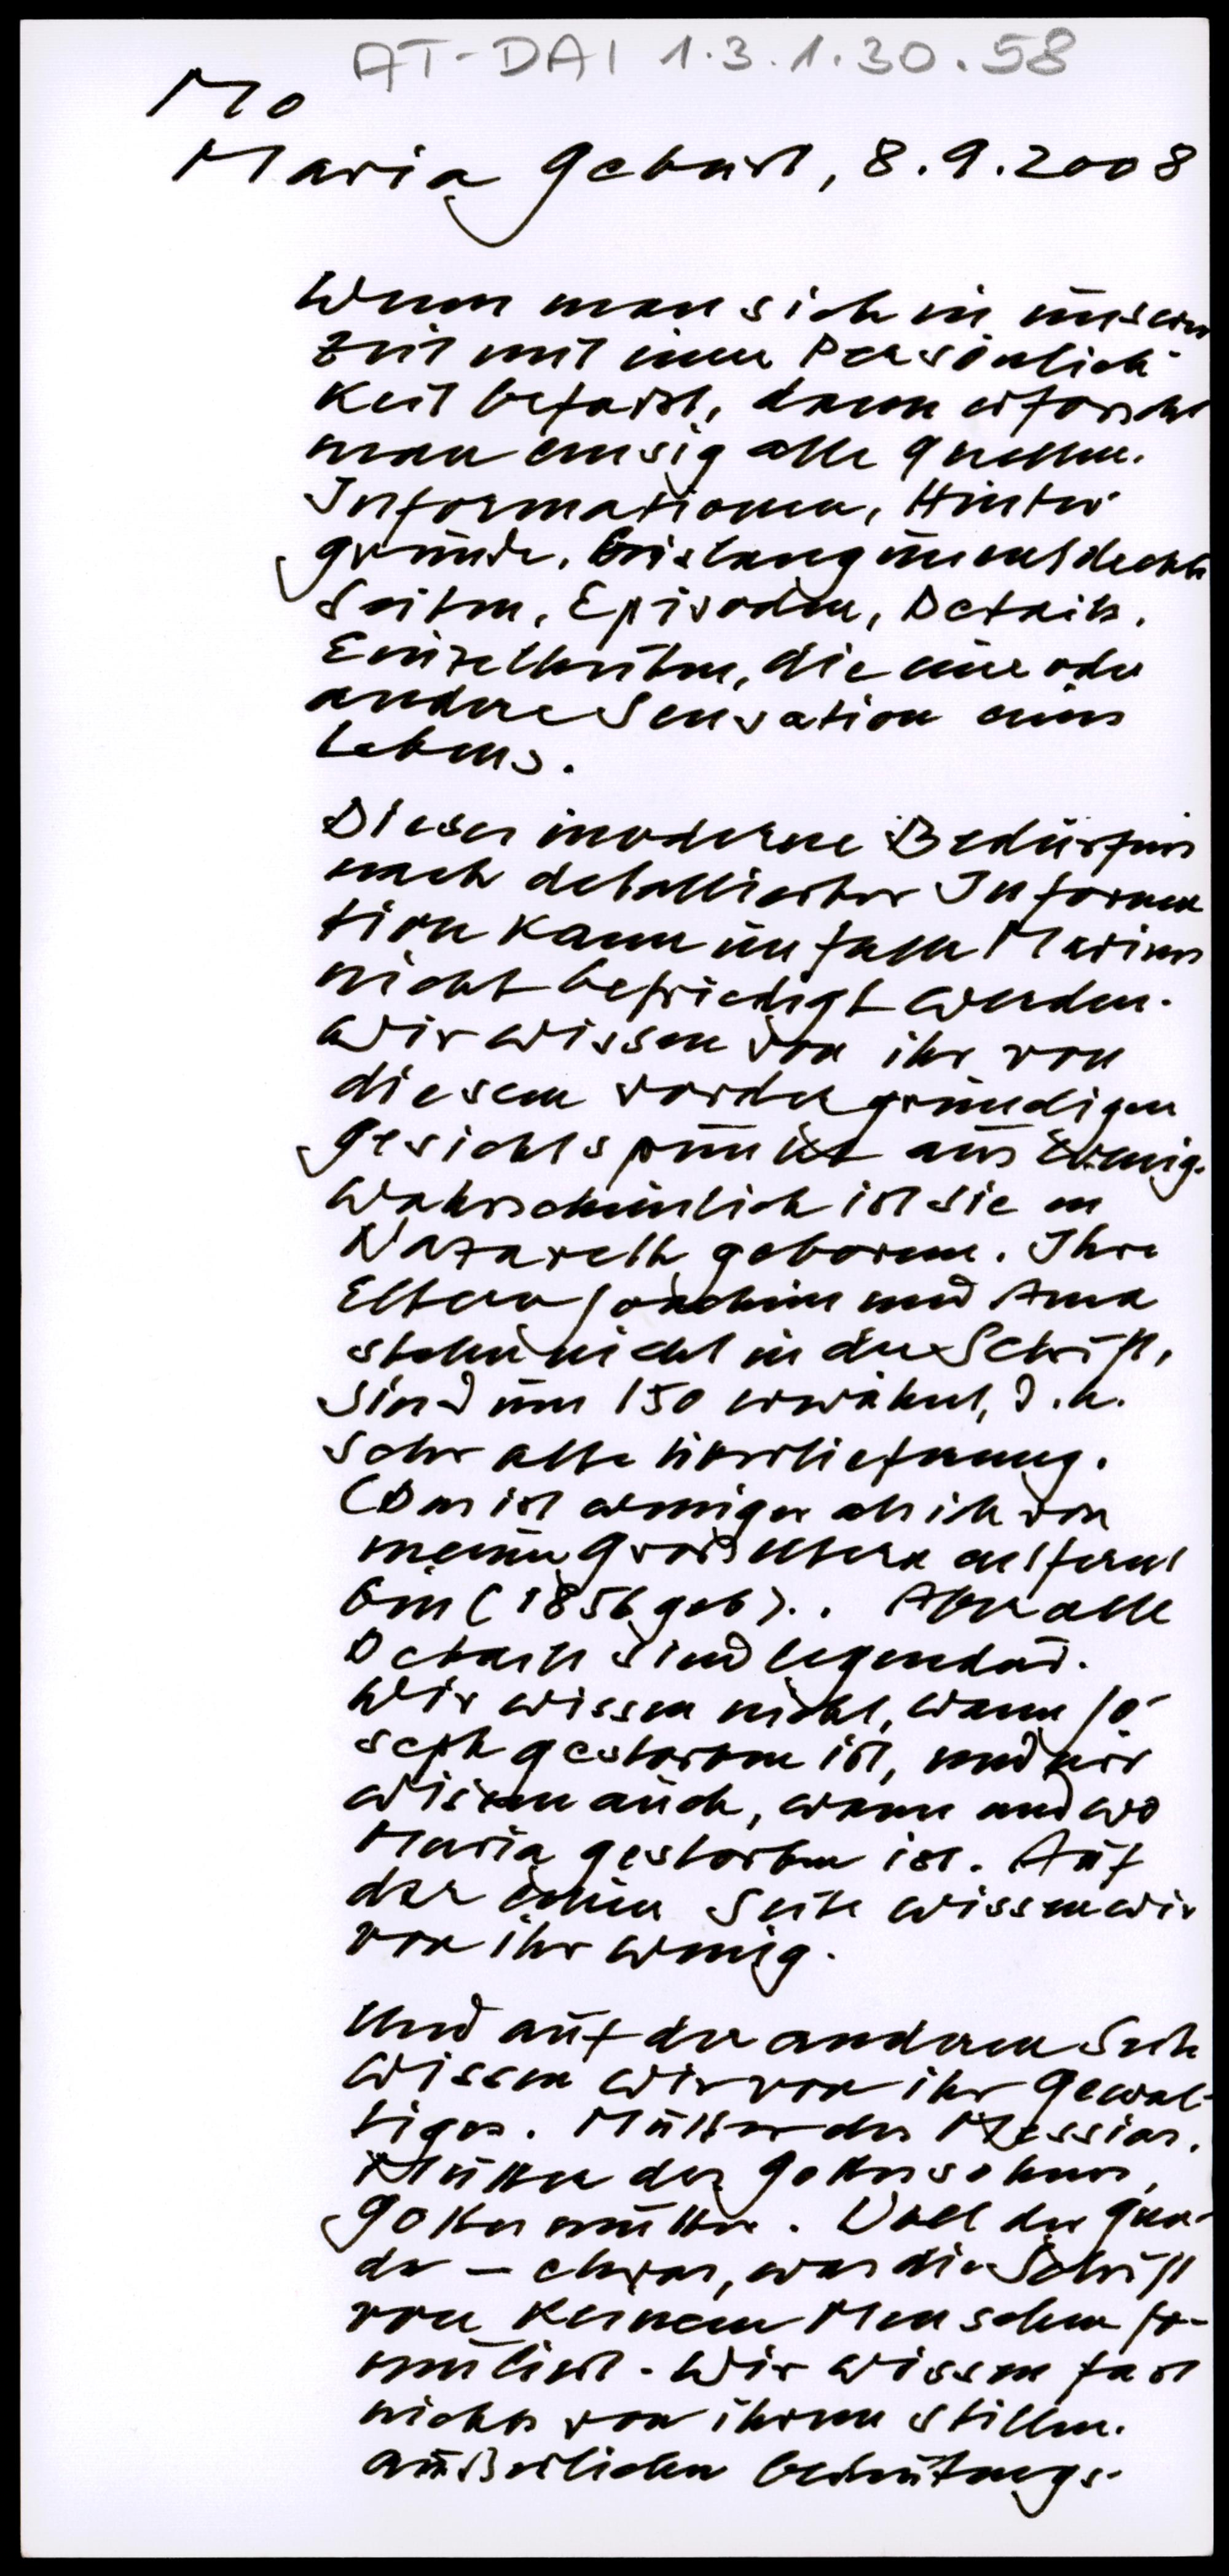 AT-DAI 1.3.1.30.58
Mo
Maria Geburt, 8.9.2008
Wenn man sich in unserer
Zeit mit einer Persönlich-
keit befasst, dann erforscht
man emsig alle Quellen.
Informationen, Hinter-
gründe. Bislang unentdeckte
Seiten, Episoden, Details.
Einzelheiten, die eine oder
andere Sensation eines
Lebens.
Dieses moderne Bedürfnis
nach detaillierter Informa
tion kann im Falle Mariens
nicht befriedigt werden.
Wir wissen von ihr von
diesem vordergründigen
Gesichtspunkt aus wenig.
Wahrscheinlich ist sie in
Nazareth geboren. Ihre
Eltern Joachim und Anna
stehen nicht in der Schrift,
sind um 150 erwähnt, d.h.
sehr alte Überlieferung.
(Das ist weniger als ich von
meinen Großeltern entfernt
bin (1856 geb).. Aber alle
Details sind legendär.
Wir wissen nicht, wann Jo-
seph gestorben ist, und wir
wissen auch, wann und wo
Maria gestorben ist. Auf
der einen Seite wissen wir
von ihr wenig.
Und auf der anderen Seite
wissen wir von ihr Gewal-
tiges. Mutter des Messias.
Mutter des Gottessohnes,
Gottesmutter. Voll der Gna-
de – etwas, was die Schrift
von keinem Menschen for-
muliert. Wir wissen fast
nichts von ihrem stillen.
äußerlichen bedeutungs-